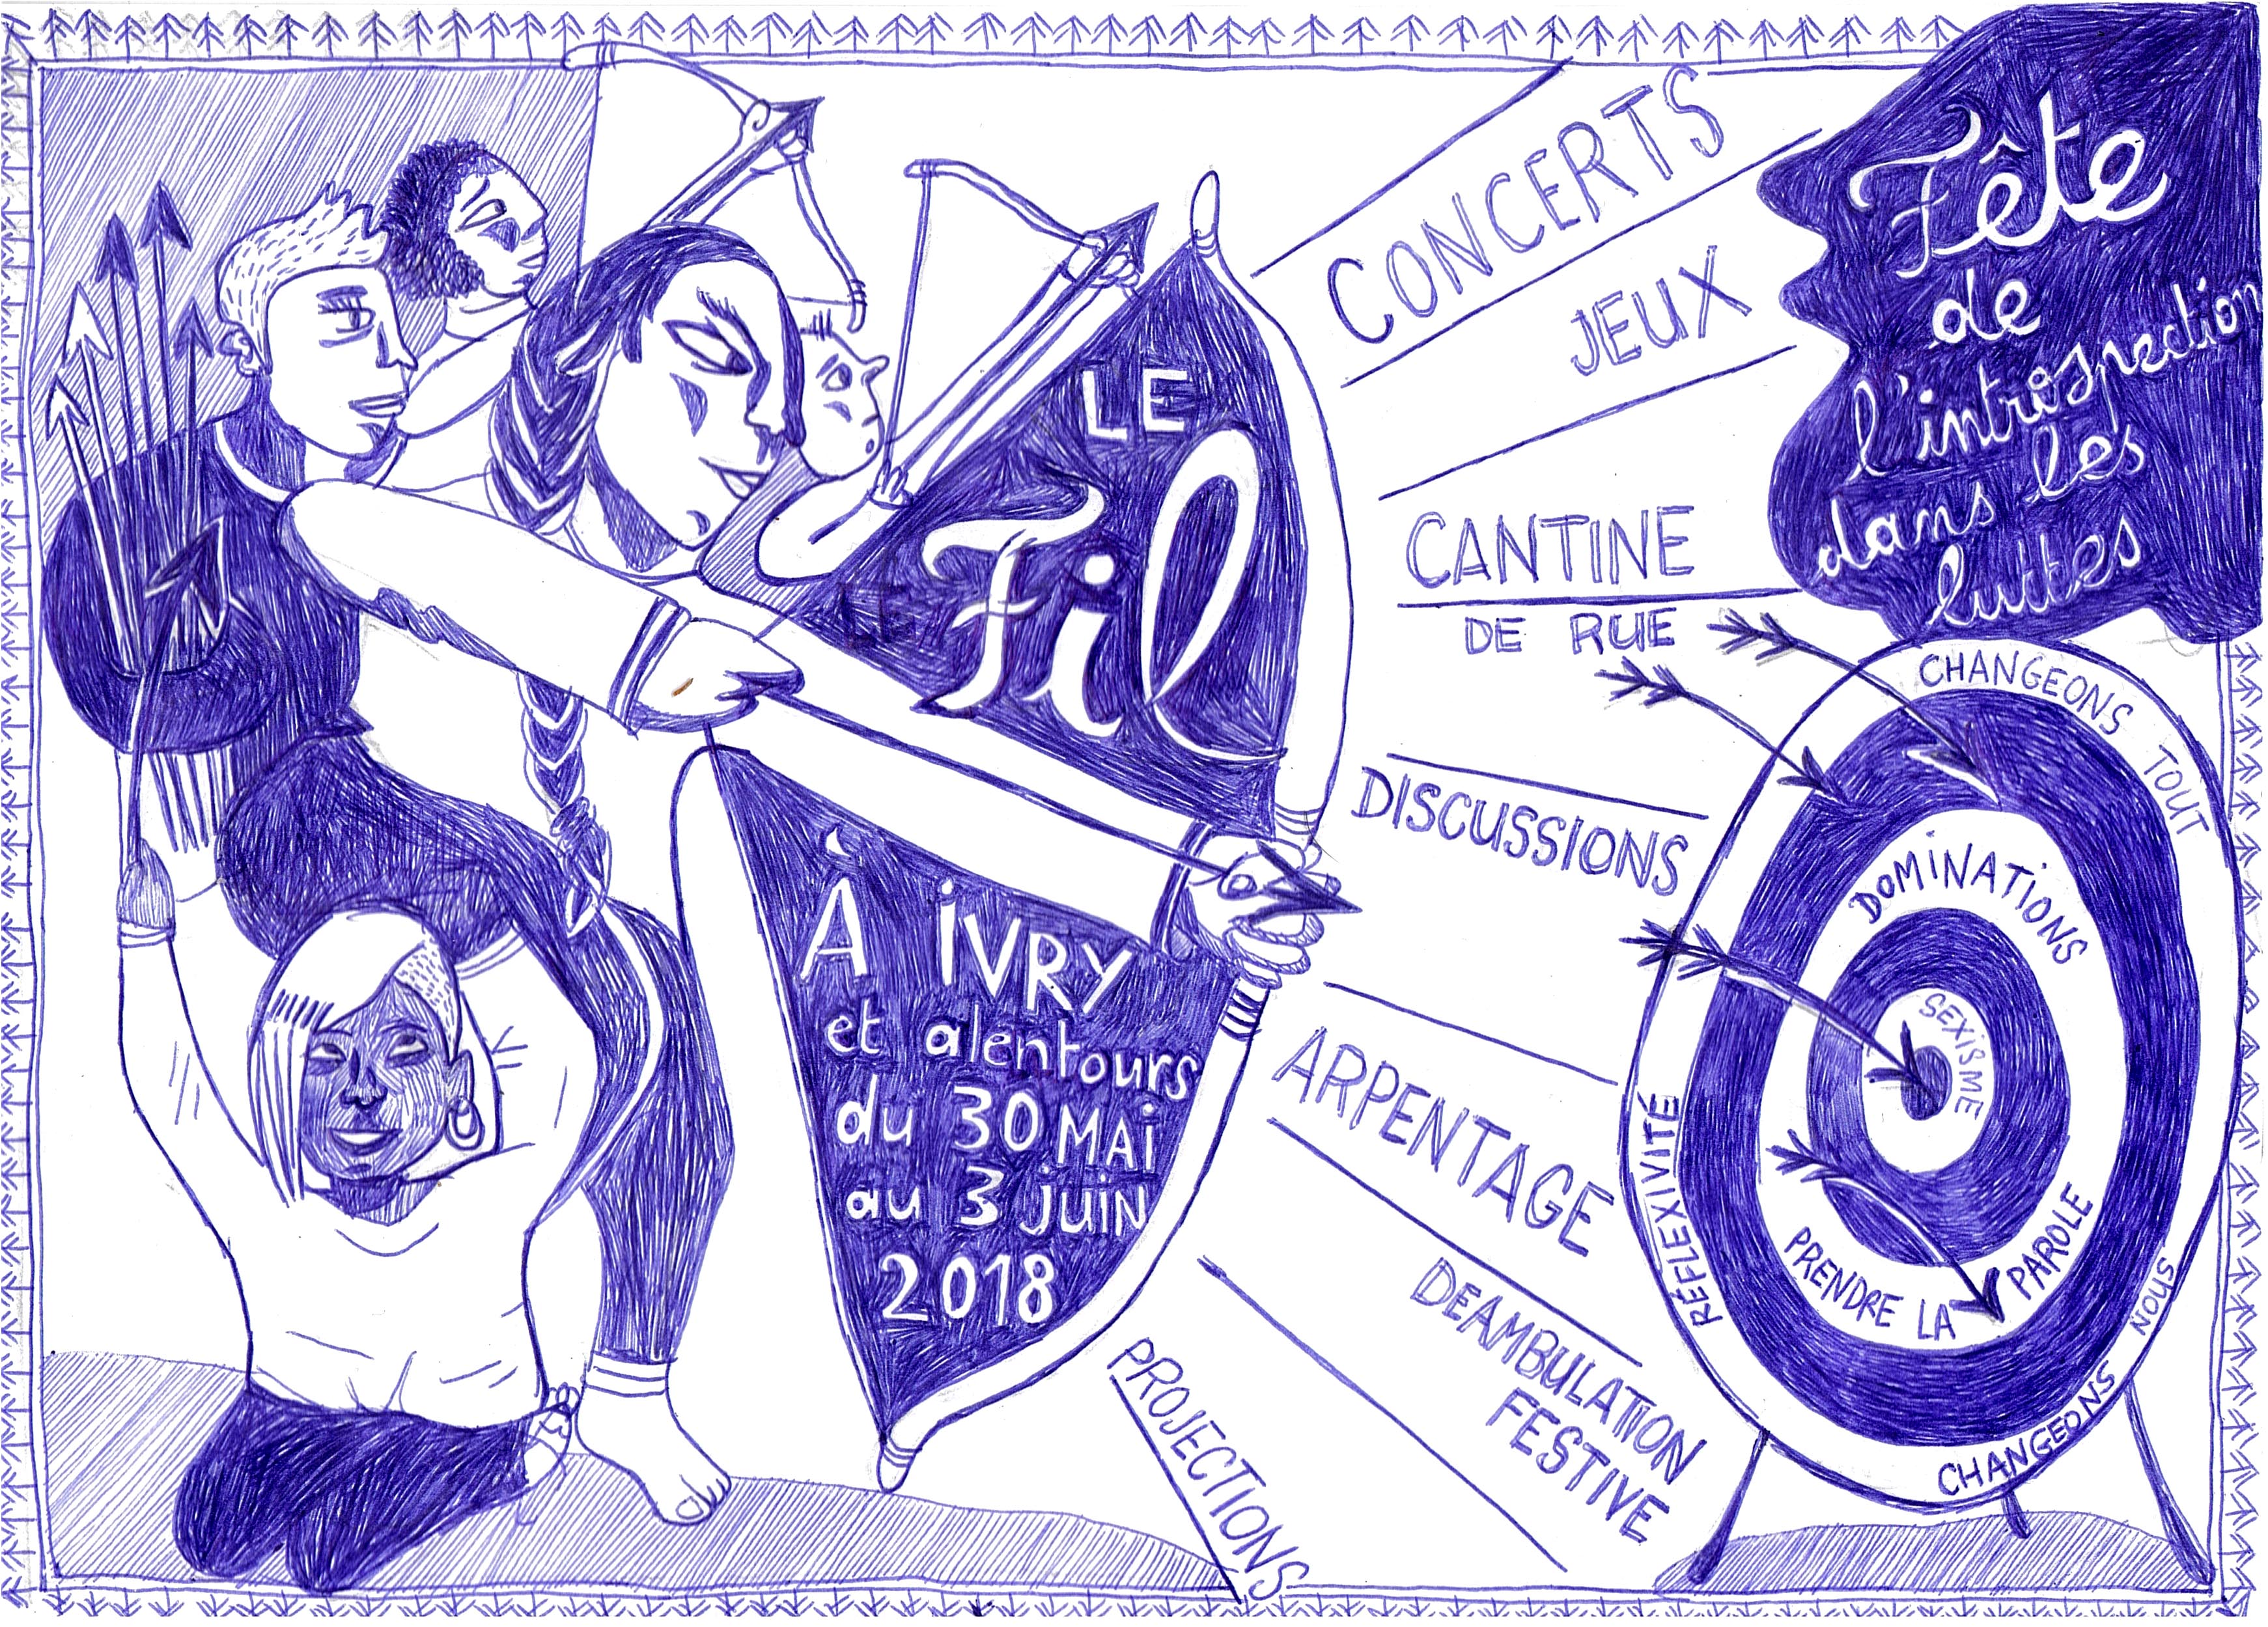 LE
Fil
À IVRY
et alentours
du 30 MAI
au 3 juin
2018
CONCERTS
JEUX
CANTINE
DE RUE
DISCUSSIONS
ARPENTAGE
DEAMBULATION
FESTIVE
PROJECTIONS
Fête
de
l'introspection
dans les
luttes
CHANGEONS TOUT
DOMINATIONS
SEXISME
PRENDRE LA PAROLE
RÉFLEXIVITÉ
CHANGEONS NOUS